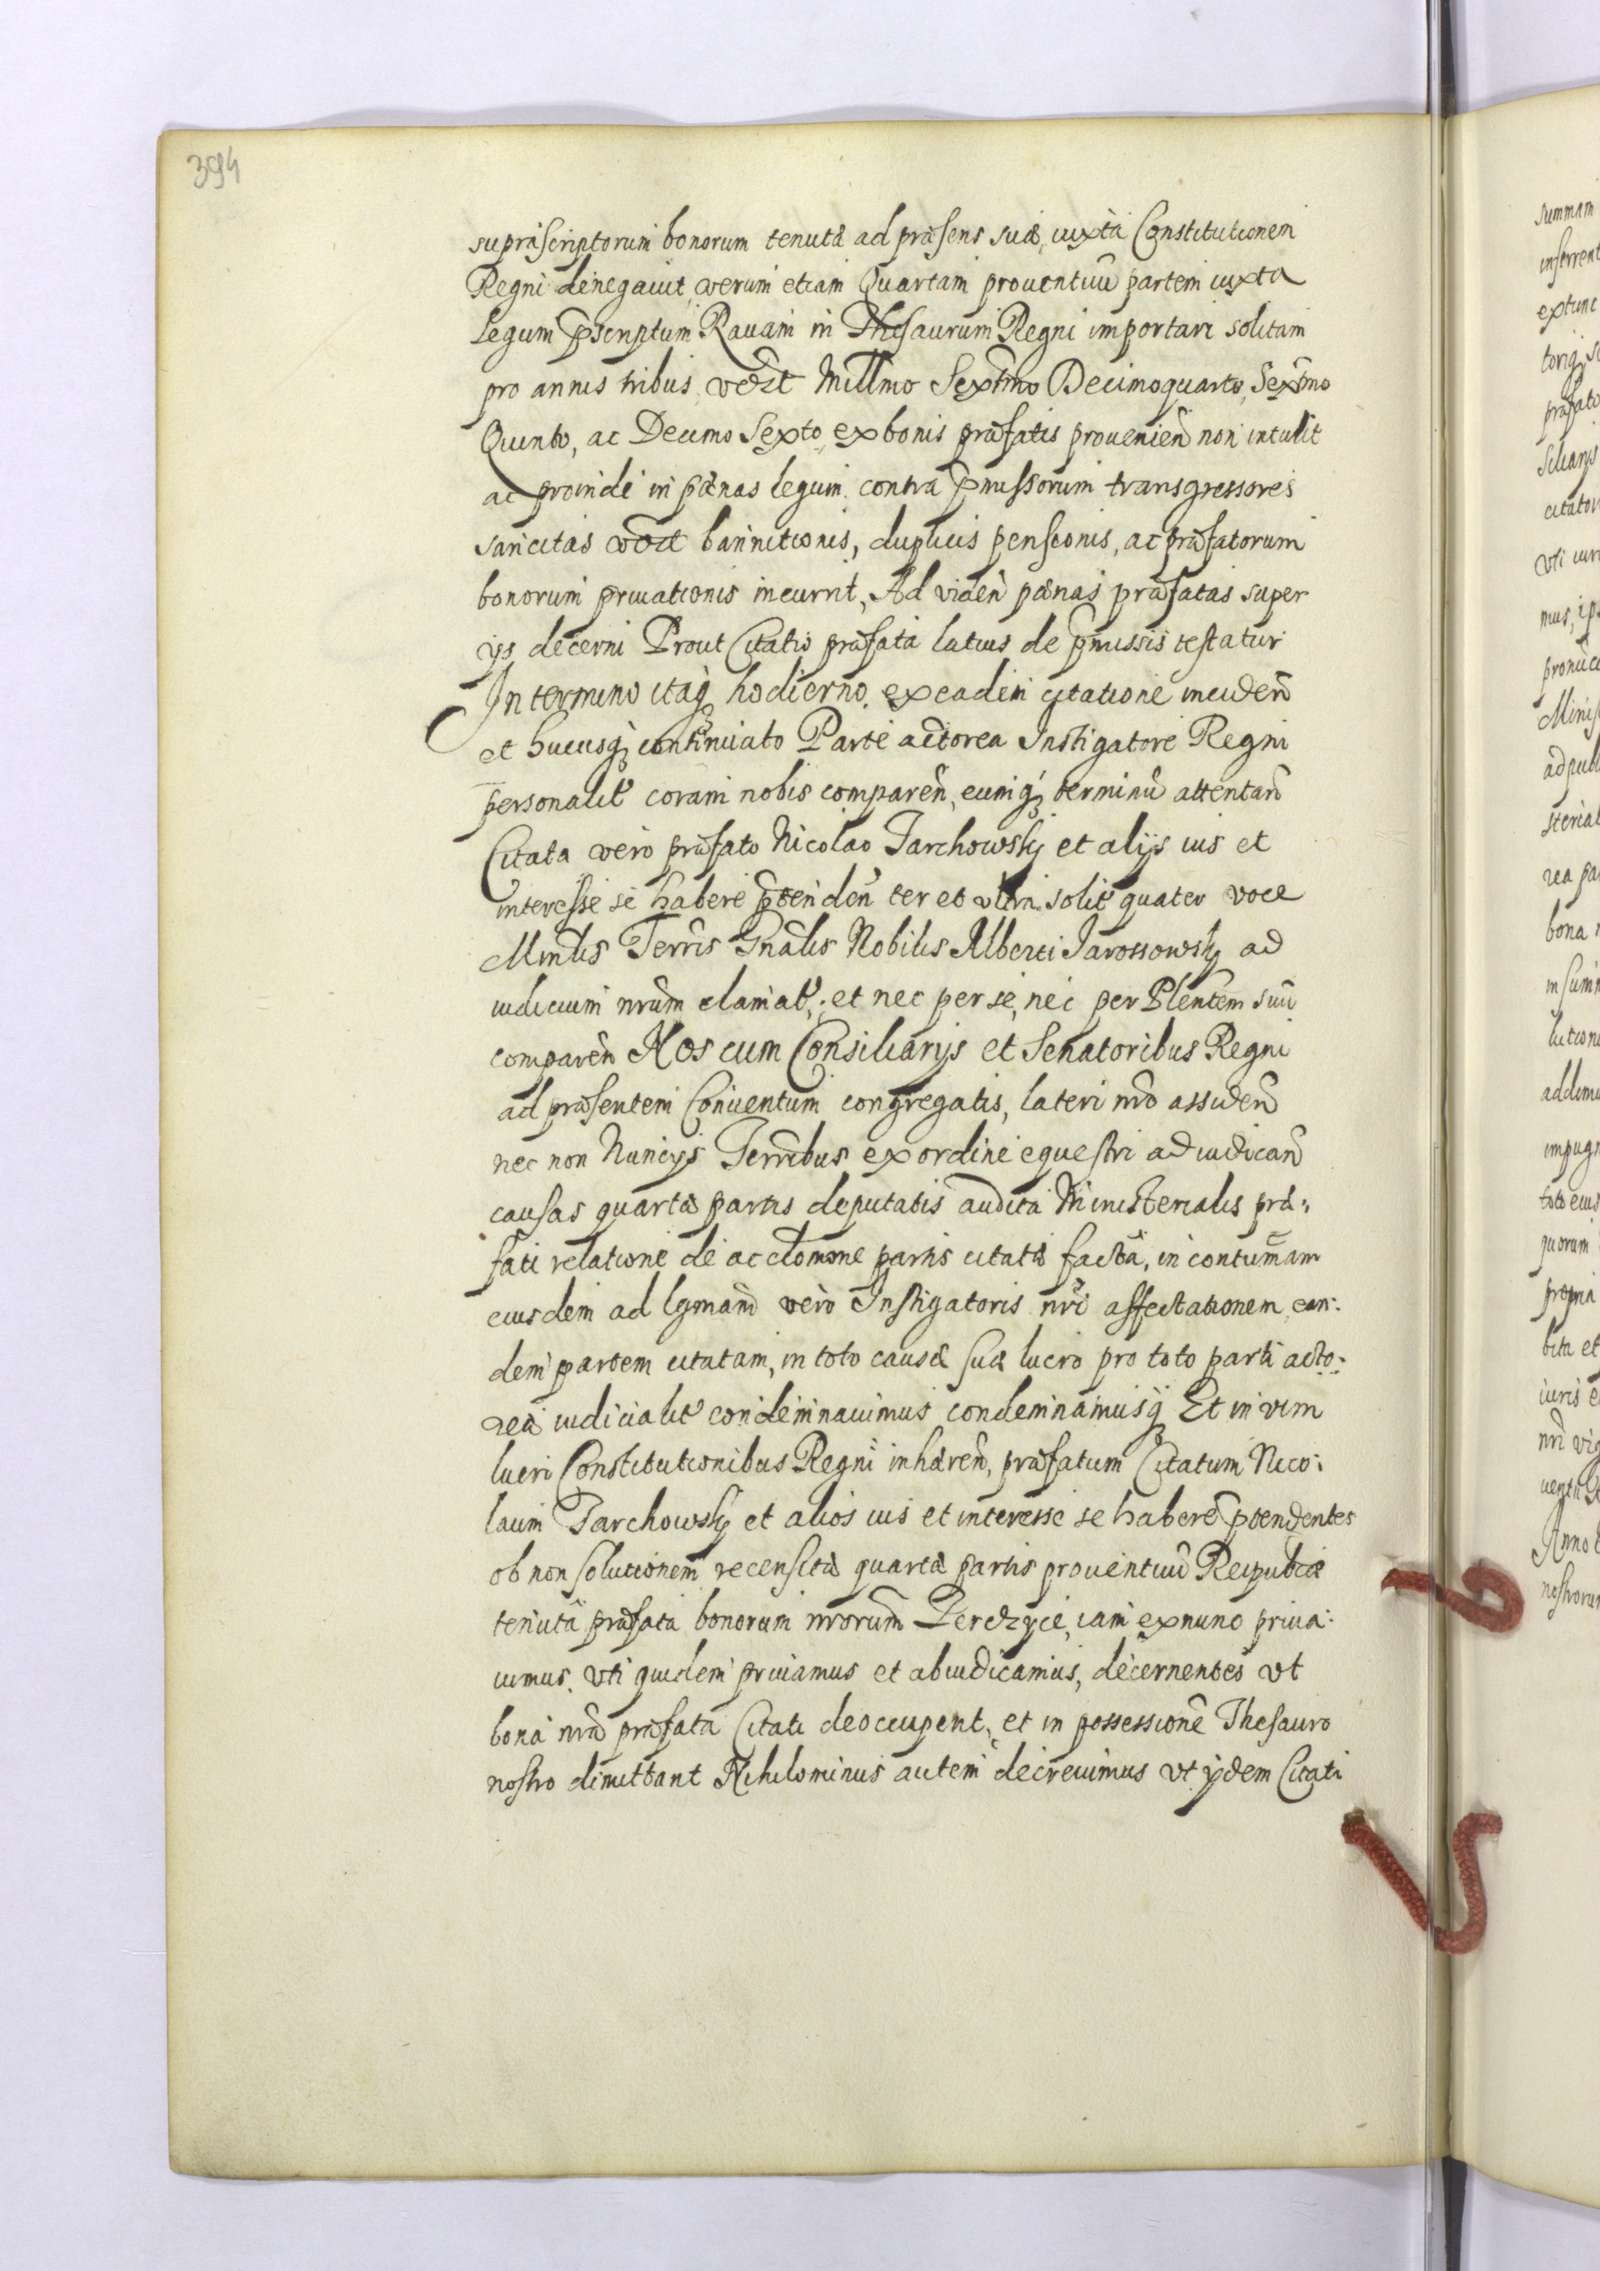 394
supràscriptorum bonorum tenutæ ad præsens suæ, iuxtà Constitutionem
Regni denegauit, verum etiam Quartam prouentuũ partem iuxta
legum p̃scriptum Rauam in Thesaurum Regni importari solitam
pro annis tribus, vdzt Millmo Sextmo Decimoquarto, Sextmo
Quinto, ac Decimo Sexto, ex bonis præfatis prouenieñ non intulit
ac proinde in pænas legum contra p̃missorum transgressores
sancitas vdzt bannitionis, duplicis pensionis, ac præfatorum
bonorum priuationis incurrit, Ad videñ pænas præfatas super
ijs decerni Prout Citatio præfata latius de p̃missis testatur
In termino itaq; hodierno ex eadem citatione incideñ
et hucusq; continuato Parte actorea Instigatore Regni
personalit̃ coram nobis compareñ, eumq; terminũ attentañ
Citata verò præfato Nicolao Tarchowskj et alijs ius et
interesse se habere p̃tendeñ ter et vltrà solit̃ quater voce
Minlis Terris Gnalis Nobilis Alberti Jarossowskj ad
iudicium nrũm clamat̃, et nec per se, nec per Plentem suũ
compareñ Nos cum Consiliarijs et Senatoribus Regni
ad præsentem Conuentum congregatis, lateri nrõ assideñ
nec non Nuncijs Terribus ex ordine equestri ad iudicañ
causas quartæ partis deputatis audita Ministerialis præ:
fati relatione de acclomone partis citatæ factâ, in contumam
eiusdem ad lgmam̃ verò Instigatoris nrĩ affectationem, ean:
dem partem citatam, in toto causæ suæ lucro pro toto parti acto:
reæ iudicialit̃ condemnauimus condemnamusq; Et in vim
lucri Constitutionibus Regni inhæreñ, præfatum Citatum Nico:
laum Tarchowskj et alios ius et interesse se habere p̃tendentes
ob non solutionem recensitæ quartæ partis prouentuũ Reipublicæ
tenutâ præfatâ bonorum nrorum̃ Perdzyce, iam ex nunc priua:
uimus, vti quidem priuamus et abiudicamus, decernentes vt
bona nrã præfata Citati deoccupent, et in possessionẽ Thesauro
nostro dimittant Nihilominus autem decreuimus vt ijdem Citati